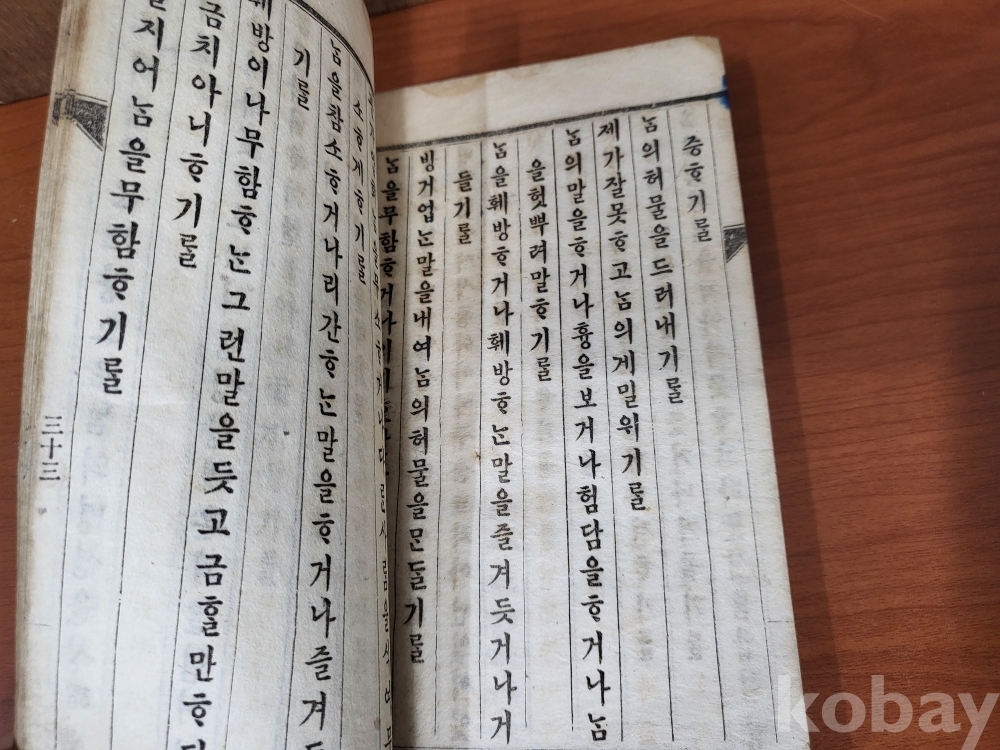 즁ᄒᆞ기ᄅᆞᆯ
ᄂᆞᆷ의허물을드러내기ᄅᆞᆯ
제가잘못ᄒᆞ고ᄂᆞᆷ의게밀위기ᄅᆞᆯ
ᄂᆞᆷ의말을ᄒᆞ거나흉을보거나험담을ᄒᆞ거나ᄂᆞᆷ
을헛뿌려말ᄒᆞ기ᄅᆞᆯ
ᄂᆞᆷ을훼방ᄒᆞ거나훼방ᄒᆞᄂᆞᆫ말을즐겨듯거나거
들기ᄅᆞᆯ
빙거업ᄂᆞᆫ말을내여ᄂᆞᆷ의허물을ᄆᆞᆫᄃᆞᆯ기ᄅᆞᆯ
ᄂᆞᆷ을무함ᄒᆞ거나
소ᄒᆞ게ᄒᆞ기ᄅᆞᆯ
ᄂᆞᆷ을참소ᄒᆞ거나리간ᄒᆞᄂᆞᆫ말을ᄒᆞ거나즐겨
기ᄅᆞᆯ
훼방이나무함ᄒᆞᄂᆞᆫ그런말을듯고금ᄒᆞᆯ만ᄒᆞ
금치아니ᄒᆞ기ᄅᆞᆯ
지어ᄂᆞᆷ을무함ᄒᆞ기ᄅᆞᆯ
三十三
kobay